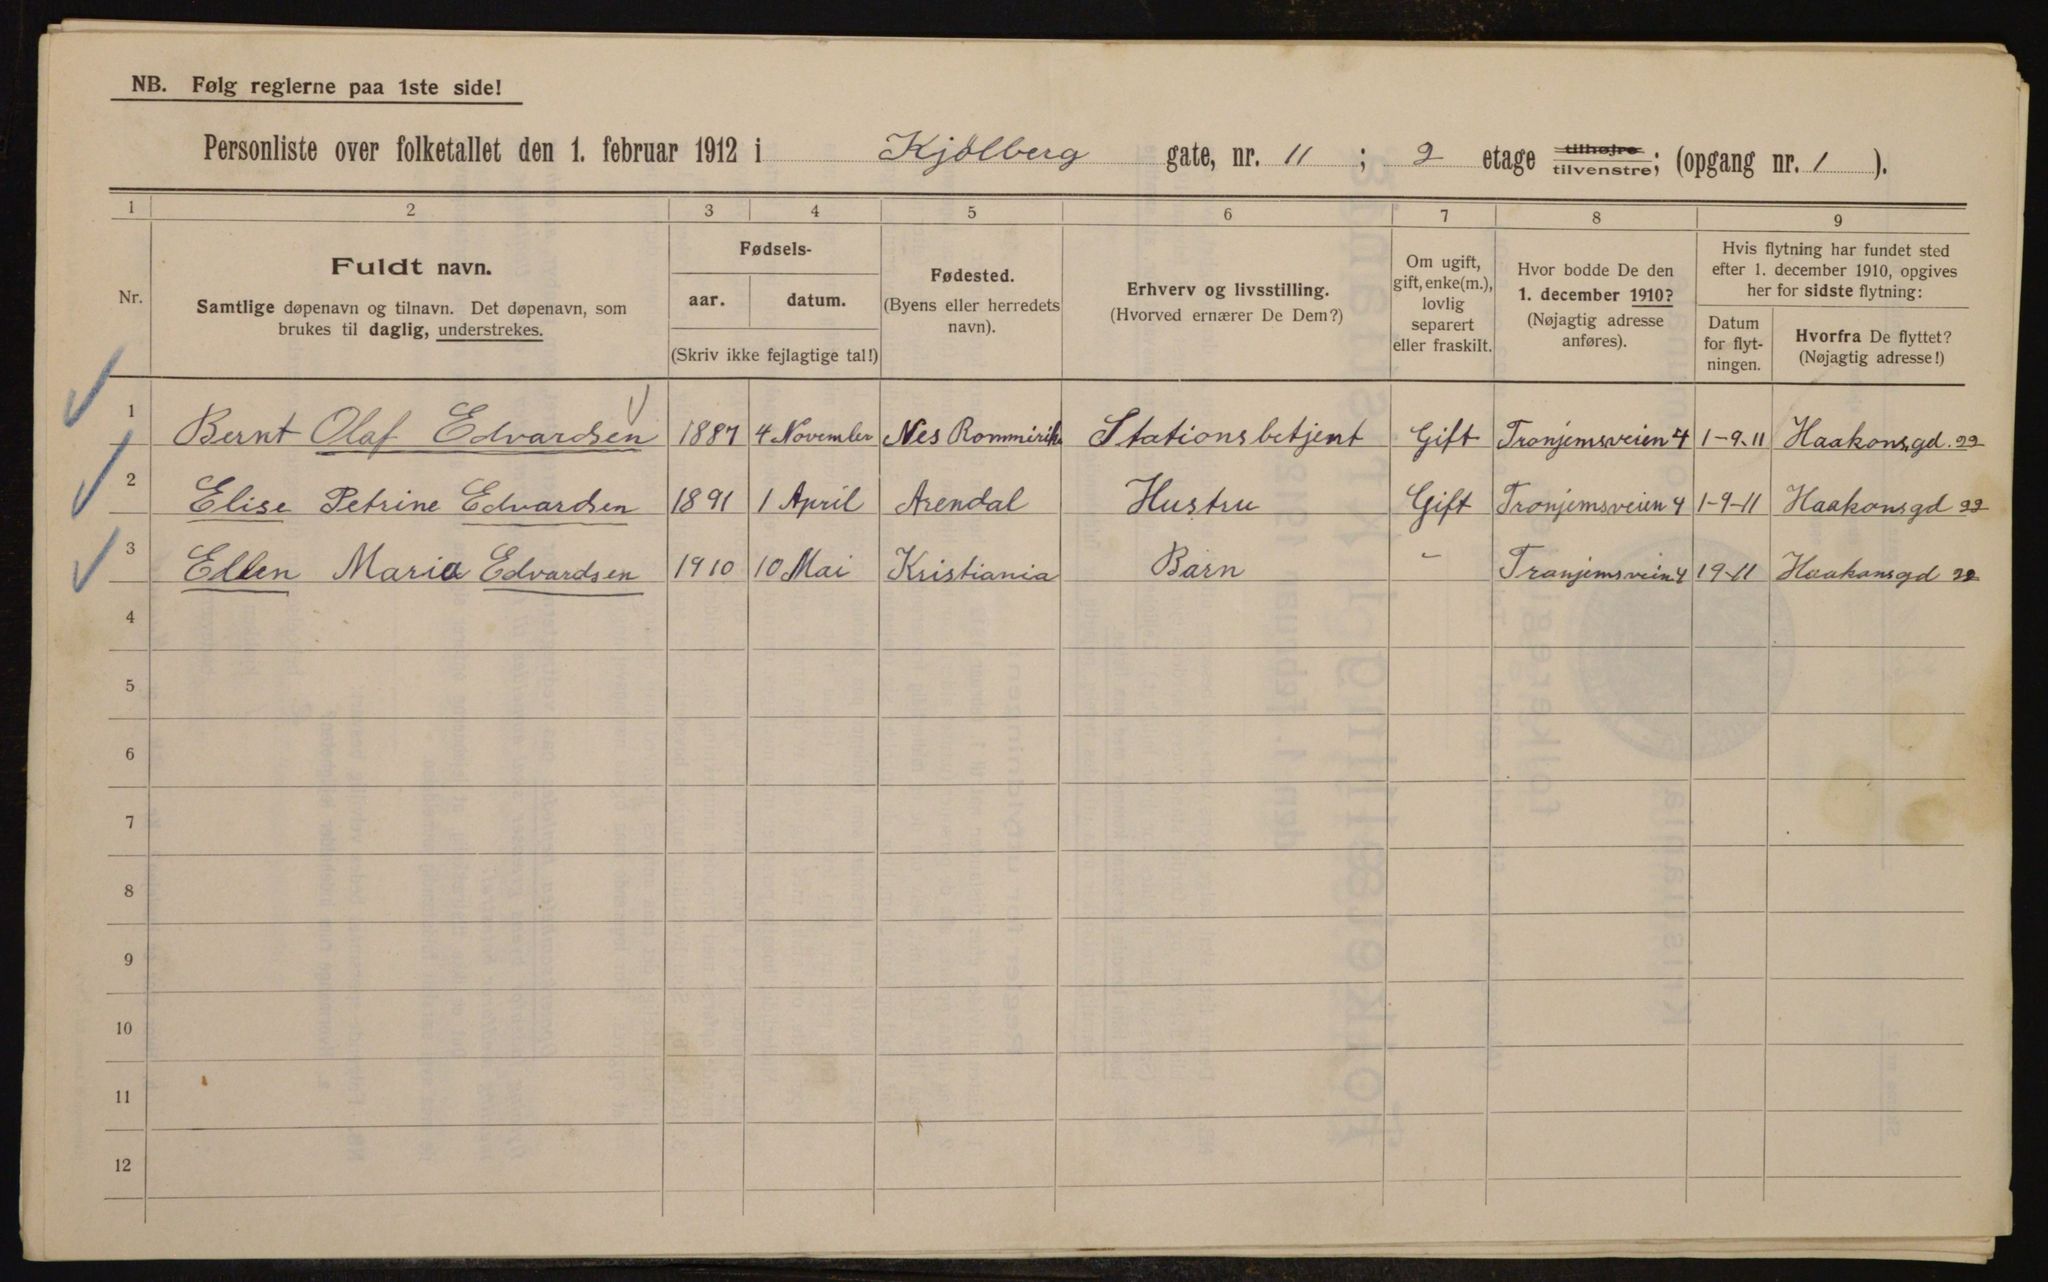 NB. Følg reglerne paa 1ste side!
Personliste over folketallet den 1. februar 1912 i Kjølberg gate, nr. 11 ; 2 etage tilhøjre tilvenstre; (opgang nr. 1 ).
1 2 3 4 5 6 7 8 9
Nr.
Fuldt navn.
Samtlige døpenavn og tilnavn. Det døpenavn, som
brukes til daglig, understrekes.
Fødsels-
aar. datum.
(Skriv ikke fejlagtige tal!)
Fødested.
(Byens eller herredets
navn).
Erhverv og livsstilling.
(Hvorved ernærer De Dem?)
Om ugift,
gift, enke(m.),
lovlig
separert
eller fraskilt.
Hvor bodde De den
1. december 1910?
(Nøjagtig adresse
anføres).
Hvis flytning har fundet sted
efter 1. december 1910, opgives
her for sidste flytning:
Datum
for flyt-
ningen.
Hvorfra De flyttet?
(Nøjagtig adresse!)
1 Bernt Olaf Edvardsen 1887 4 November Nes Rommirike Stationsbetjent Gift Tronjemsveien 4 1-9-11 Haakonsgd. 22
2 Elise Petrine Edvardsen 1891 1 April Arendal Hustru Gift Tronjemsveien 4 1-9-11 Haakonsgd 22
3 Ellen Maria Edvardsen 1910 10 Mai Kristiania Barn - Tronjemsveien 4 19-11 Haakonsgd 22
4
5
6
7
8
9
10
11
12